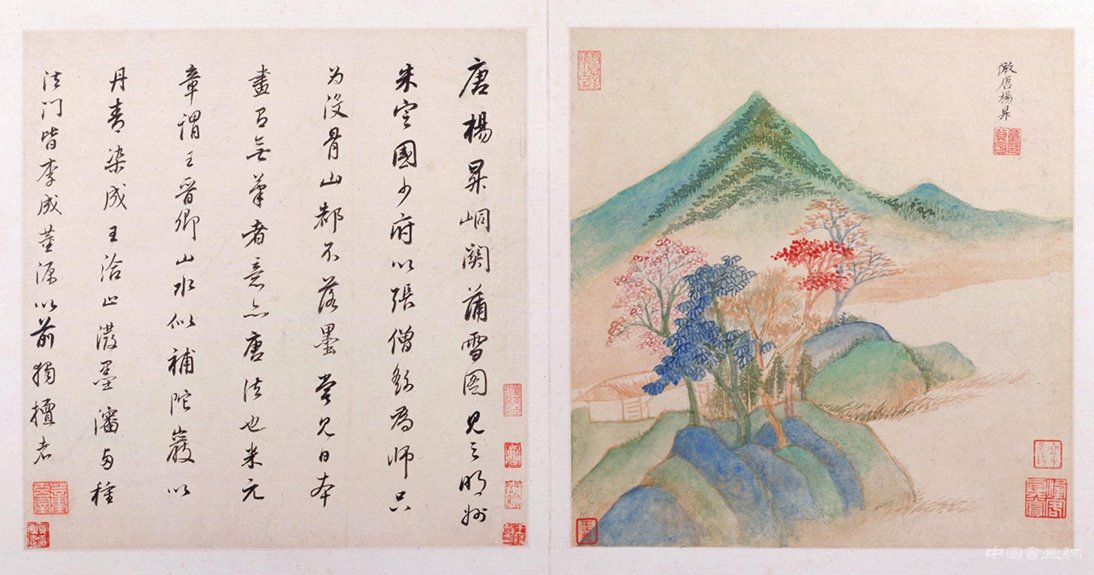 倣唐楊昇
唐楊昇峒関蒲雪图見之明州
朱定國少府以張僧繇為師只
为没骨山都不落墨嘗見日本
畫有無筆者意亦唐法也米元
章謂王晉卿山水似補陀巖以
丹青染成王洽止潑墨瀋两種
法门皆李成董源以前獨擅者
中国書画網